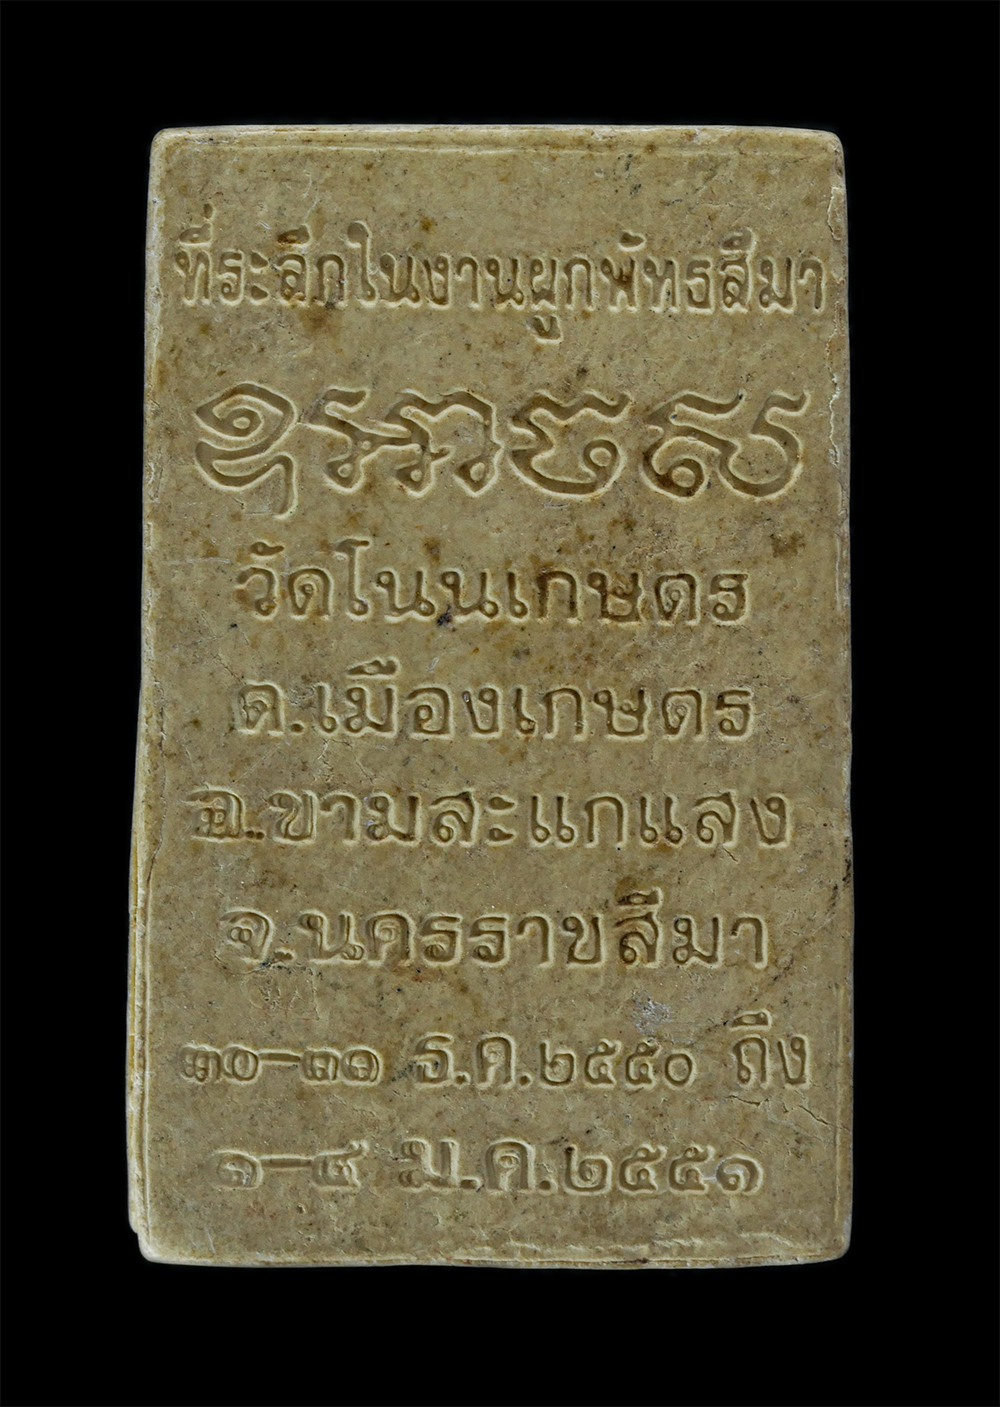 ที่ระลึกในงานผูกพัทธสีมา
วัดโนนเกษตร
ต.เมืองเกษตร
อ.ขามสะแกแสง
จ.นครราชสีมา
๓๐-๓๑ ธ.ค.๒๕๕๐ ถึง
๑-๔ ม.ค.๒๕๕๑